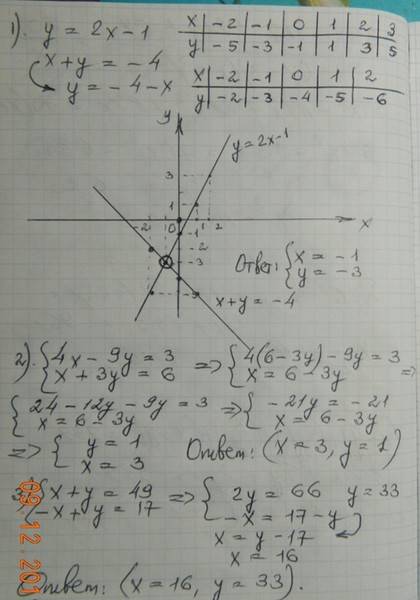 1). y = 2x - 1
x | -2 | -1 | 0 | 1 | 2 | 3
y | -5 | -3 | -1 | 1 | 3 | 5
x + y = -4
y = -4 - x
x | -2 | -1 | 0 | 1 | 2
y | -2 | -3 | -4 | -5 | -6
y
y = 2x-1
3
1
-2 0 1 2 x
-1
-2
-3
-5
Ответ: { x = -1
y = -3
x + y = -4
2). { 4x - 9y = 3 => { 4(6 - 3y) - 9y = 3
x + 3y = 6 x = 6 - 3y =>
{ 24 - 12y - 9y = 3 => { -21y = -21
x = 6 - 3y x = 6 - 3y
=> { y = 1
x = 3
Ответ: (x = 3, y = 1)
3) { x + y = 49 => { 2y = 66 y = 33
-x + y = 17 -x = 17 - y
x = y - 17
x = 16
Ответ: (x = 16, y = 33).
09.12.201